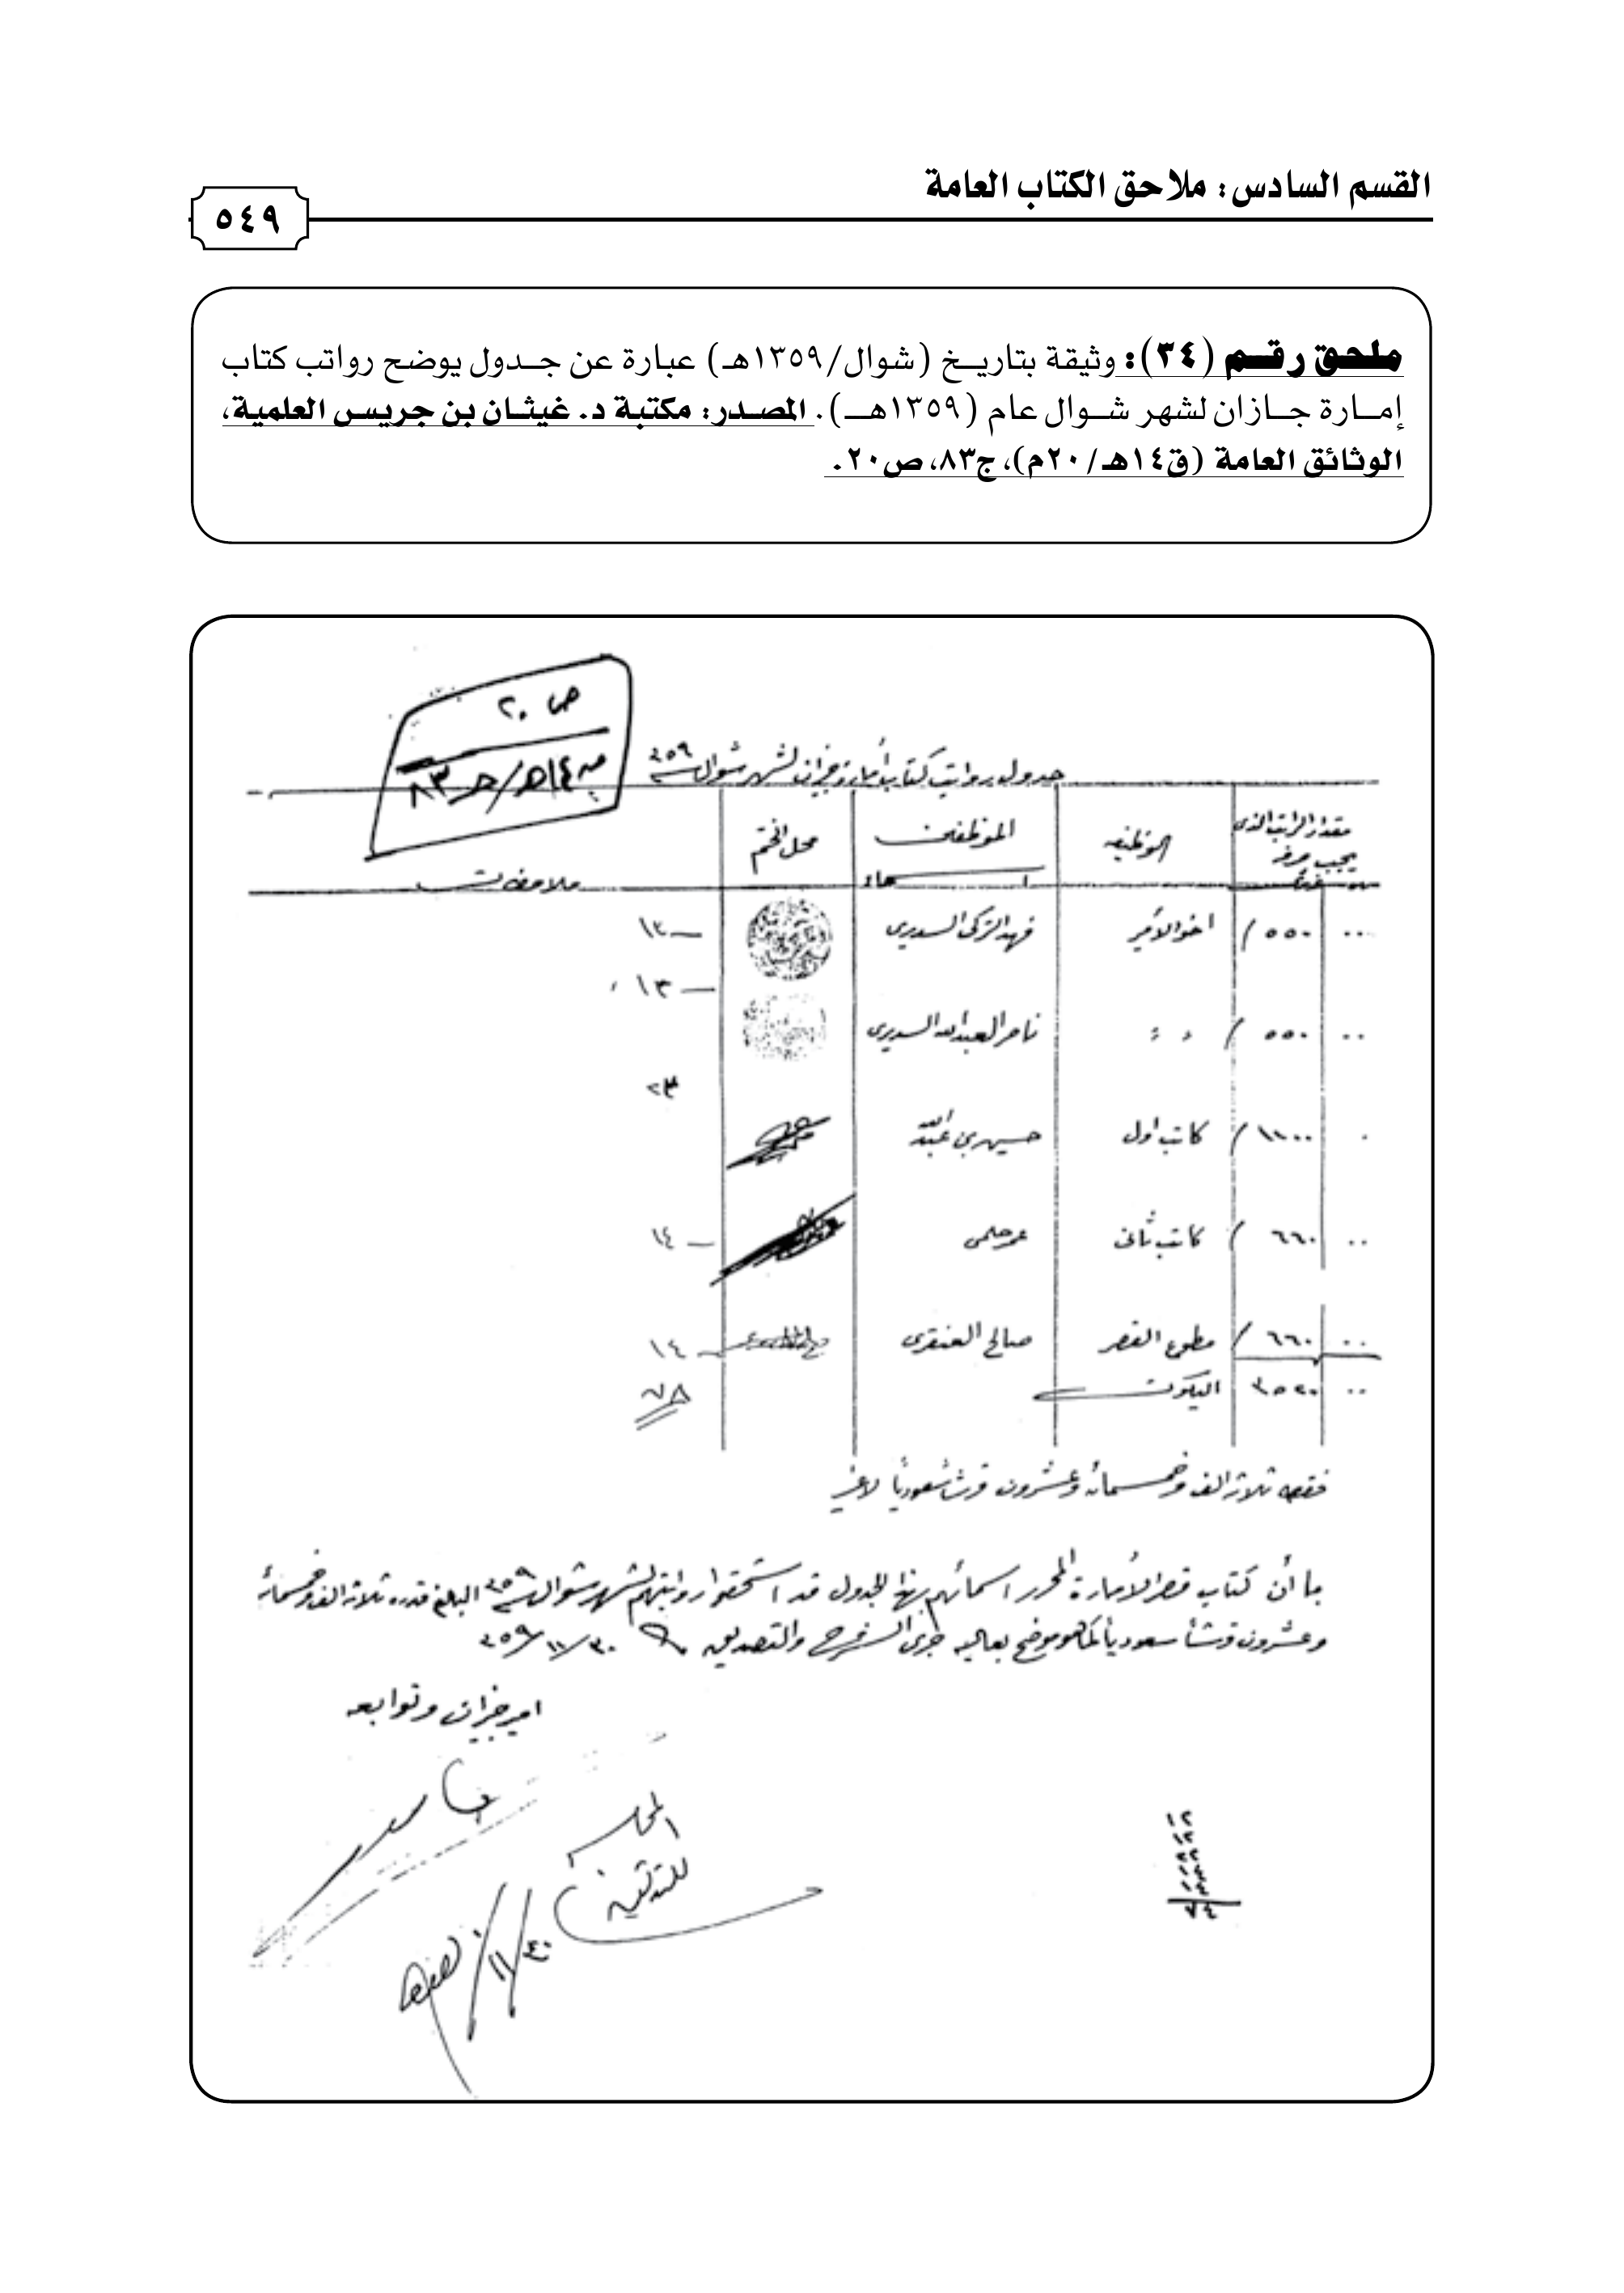 القسم السادس: ملاحق الكتاب العامة
٥٤٩
ملحق رقم (٣٤): وثيقة بتاريخ (شوال/١٣٥٩هـ) عبارة عن جدول يوضح رواتب كتاب
إمارة جازان لشهر شوال عام (١٣٥٩هـ). المصدر: مكتبة د. غيثان بن جريس العلمية،
الوثائق العامة (ق١٤هـ/٢٠م)، ج٨٣، ص٢٠.
ص ٢٠
ق١٤هـ/ج٨٣
جدول برواتب كتاب أمارة جيزان لشهر شوال سنة ٣٥٩
مقدار الراتب الذى يجب صرفه
الوظيفه
أسماء الموظفين
محل الختم
ملاحظات
٠٠ ٥٥٠ / اخو الأمير فهد التركى السديرى ١٢
١٣
٠٠ ٥٥٠ / ناصر العبدالله السديرى
٢٣
٠ ١١٠٠ / كاتب اول حسين بن عبدالله
٠٠ ٦٦٠ / كاتب ثانى عمر حلمى ١٤
٠٠ ٦٦٠ / مطوع القصر صالح العنقرى ١٤
٠٠ ٣٥٢٠ اليكون
فقط ثلاثة الف وخمسمائه وعشرون قرشا سعوديا لاغير
بما أن كتاب قصر الأمارة المحرر اسمائهم بهذا الجدول قد استحقوا رواتبهم لشهر شوال سنة ٣٥٩ البالغ قدره ثلاثة الف وخمسمائة
وعشرون قرشا سعوديا كما هو موضح بعاليه جرى الشرح والتصديق ٣٠/١١/٣٥٩
امير جيزان وتوابعه